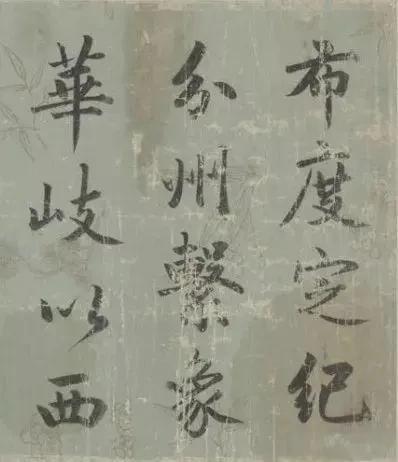 布度定纪
分州繫象
華岐以西